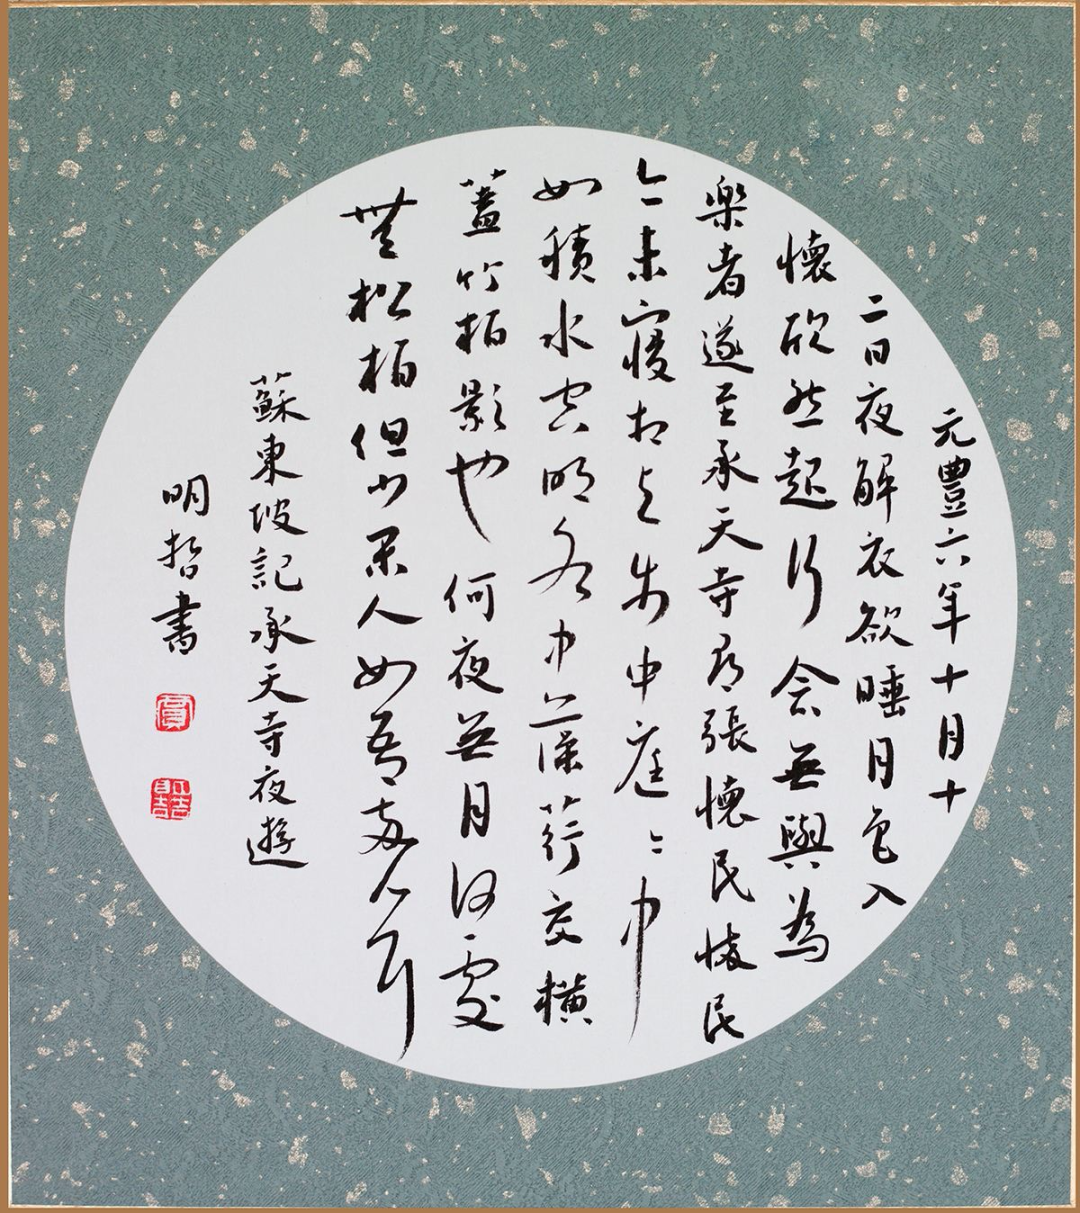 元豐六年十月十
二日夜解衣欲睡月色入
懷欣然起行念無與為
楽者遂至承天寺尋張懷民懷民
亦未寢相与步中庭〻中
如積水空明水中藻荇交橫
蓋竹柏影也何夜無月何處
無松柏但少閑人如吾兩人耳
蘇東坡記承天寺夜遊
明哲書